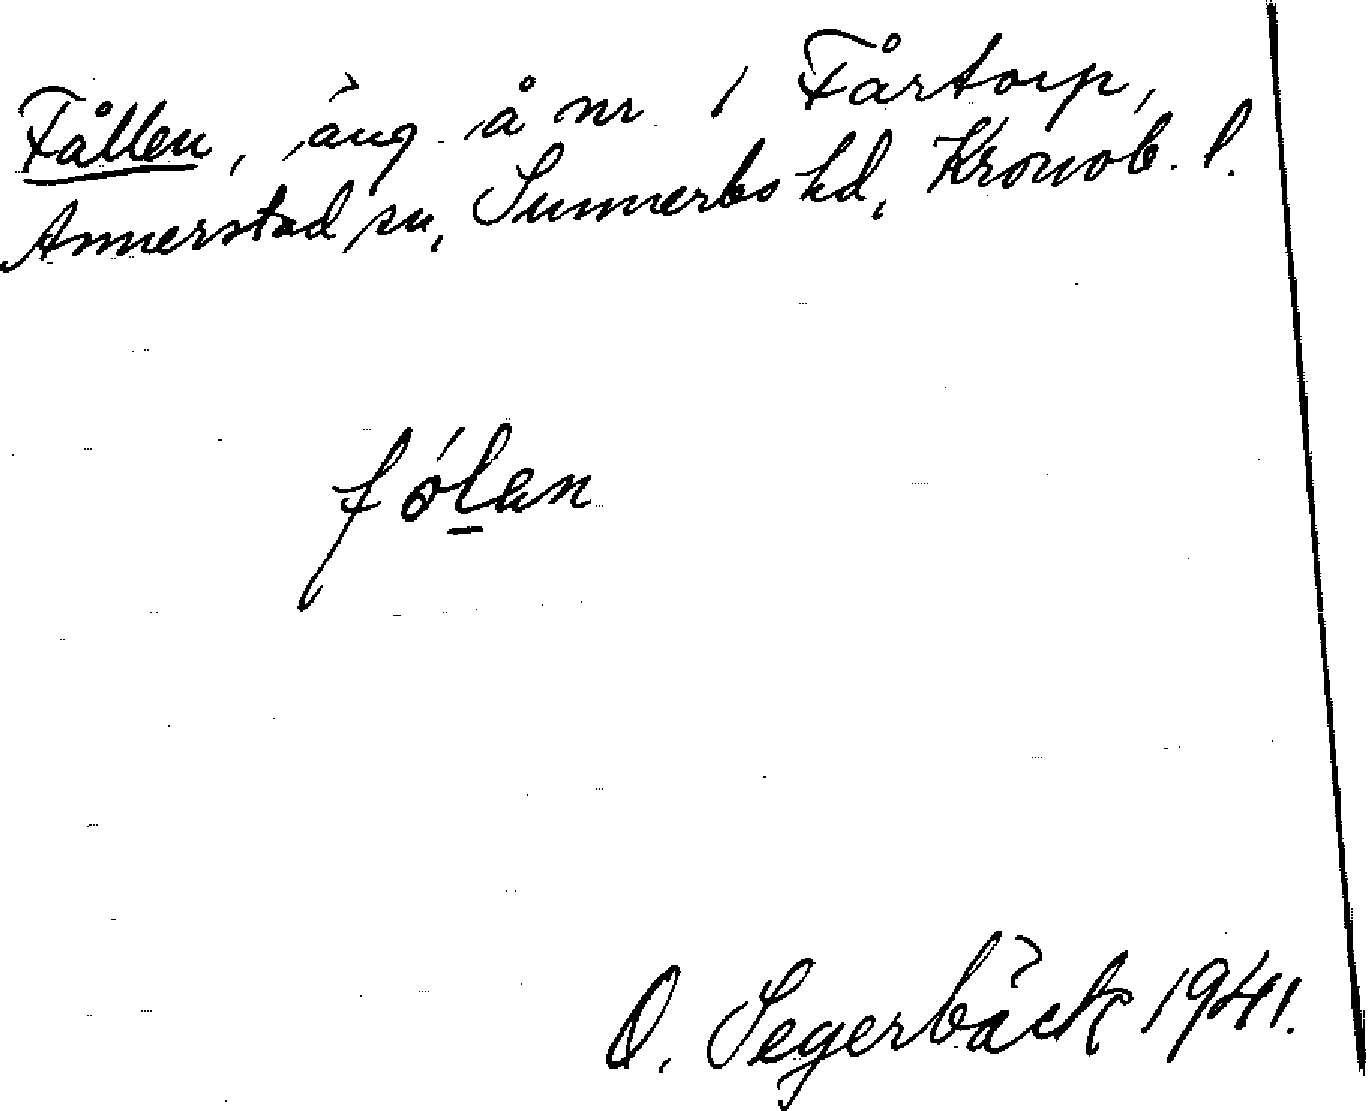 Fållen, äng å nr 1 Fårtorp,
Annerstad sn, Sunnerbo hd, Kronob. l.
fólan
O. Segerbäck 1941.